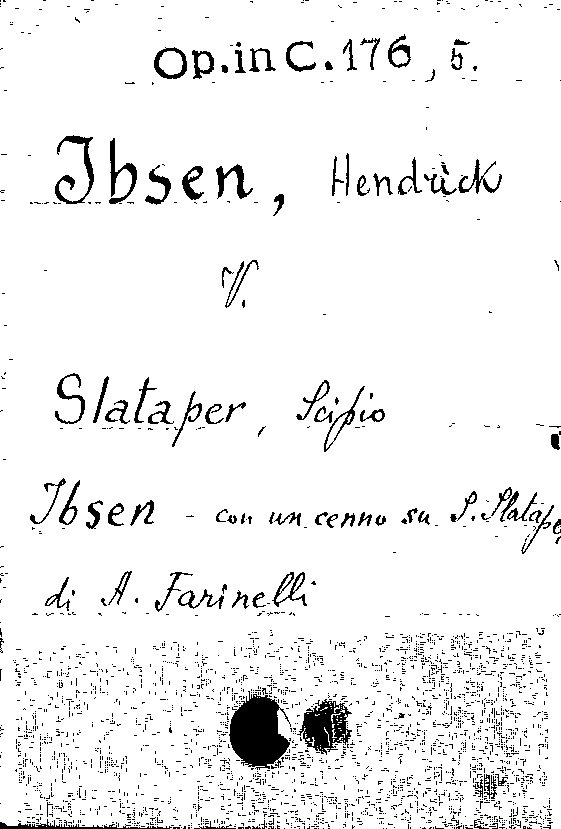 Op. in C. 176, 5.
Ibsen, Hendrick
V.
Slataper, Scipio
Ibsen - con un cenno su S. Slatape
di A. Farinelli